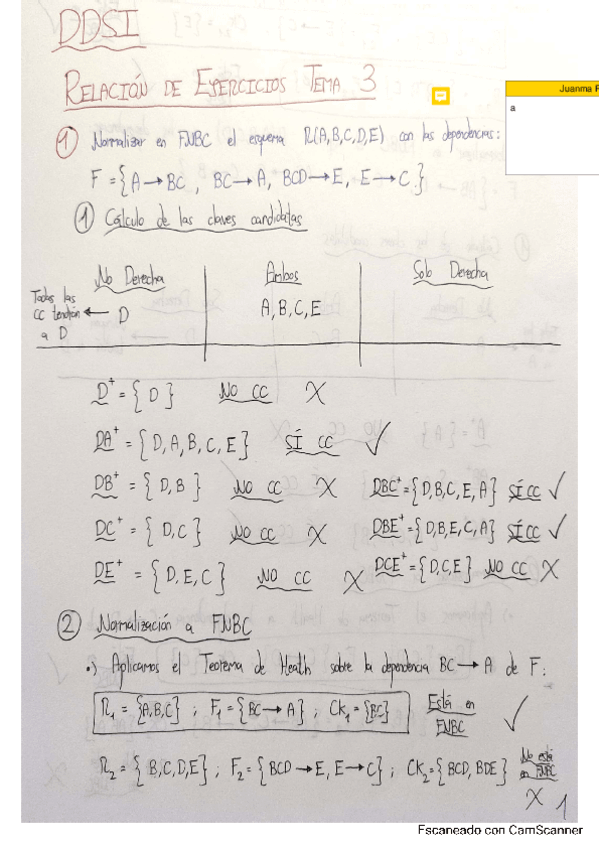 DDSI
RELACIÓN DE EJERCICIOS TEMA 3
Juanma F
a
① Normalizar en FNBC el esquema R(A,B,C,D,E) con las dependencias:
F = {A → BC , BC → A, BCD → E, E → C.}
① Cálculo de las claves candidatas
No Derecha Ambos Solo Derecha
Todas las
CC tendrán ← D A, B, C, E
a D
D⁺ = { D } NO CC X
DA⁺ = { D, A, B, C, E } SÍ CC ✓
DB⁺ = { D, B } NO CC X DBC⁺ = {D,B,C,E,A} SÍ CC ✓
DC⁺ = { D, C } NO CC X DBE⁺ = {D,B,E,C,A} SÍ CC ✓
DE⁺ = { D, E, C } NO CC X DCE⁺ = {D,C,E} NO CC X
② Normalización a FNBC
•) Aplicamos el Teorema de Heath sobre la dependencia BC → A de F:
R₁ = {A,B,C} ; F₁ = {BC → A} ; CK₁ = {BC} Está en FNBC ✓
R₂ = { B,C,D,E} ; F₂ = {BCD → E, E → C} ; CK₂ = {BCD, BDE} No está en FNBC X
1
Escaneado con CamScanner